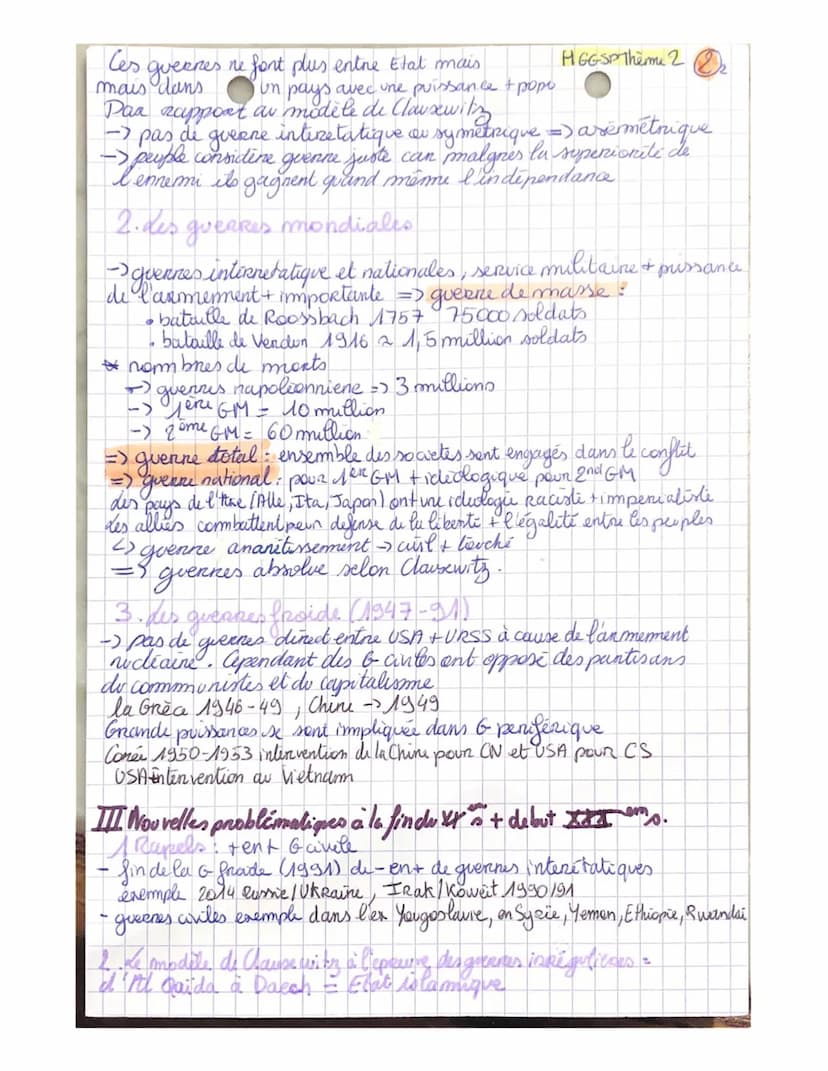 Ces guerres ne font plus entre Etat mais
HGGSP Thème 2
2 2
mais dans un pays avec une puissance + popu
Par rapport au modèle de Clausewitz
-> pas de guerre interetatique ou symétrique => asémétrique
-> peuple considère guerre juste car malgrès la superiorité de
l'ennemi ils gagnent quand même l'indépendance
2. Les guerres mondiales
-> guerres interretatique et nationales, service militaire + puissance
de l'armement + importante => guerre de masse :
• bataille de Roossbach 1757 75000 soldats
• bataille de Verdun 1916 ≈ 1,5 million soldats
* nombres de morts
-> guerres napoléonniene => 3 millions
-> 1ère GM = 10 million
-> 2ème GM = 60 million
=> guerre total : ensemble des societés sont engagés dans le conflit
=> guerre national : pour 1ère GM + idéologique pour 2nd GM
des pays de l'Axe (Alle, Ita, Japon) ont une ideologie raciste + imperialiste
les alliés combattent pour defense de la liberté + l'égalité entre les peuples
↳ guerre ananétissement -> civil + touché
=> guerres absolue selon Clausewitz.
3. Les guerres froide (1947-91)
-> pas de guerres direct entre USA + URSS à cause de l'armement
nucléaire. Cependant des G civiles ont opposé des partisans
du communistes et du capitalisme
la Grèce 1946-49, Chine -> 1949
Grande puissances se sont impliquée dans G periférique
Corée 1950-1953 intervention de la Chine pour CN et USA pour CS
USA intervention au Vietnam
III Nouvelles problématiques à la fin du XXème s + debut XXIème s.
1 Rapels : + en + G civile
- fin de la G froide (1991) de - en + de guerres interétatiques
exemple 2014 Russie/UKraine, Irak/Koweït 1990/91
- guerres civiles exemple dans l'ex Yougoslavie, en Syrie, Yemen, Ethiopie, Rwanda
2. Le modèle de Clausewitz à l'épreuve des guerres irrégulières =
d'Al Qaïda à Daech = Etat islamique